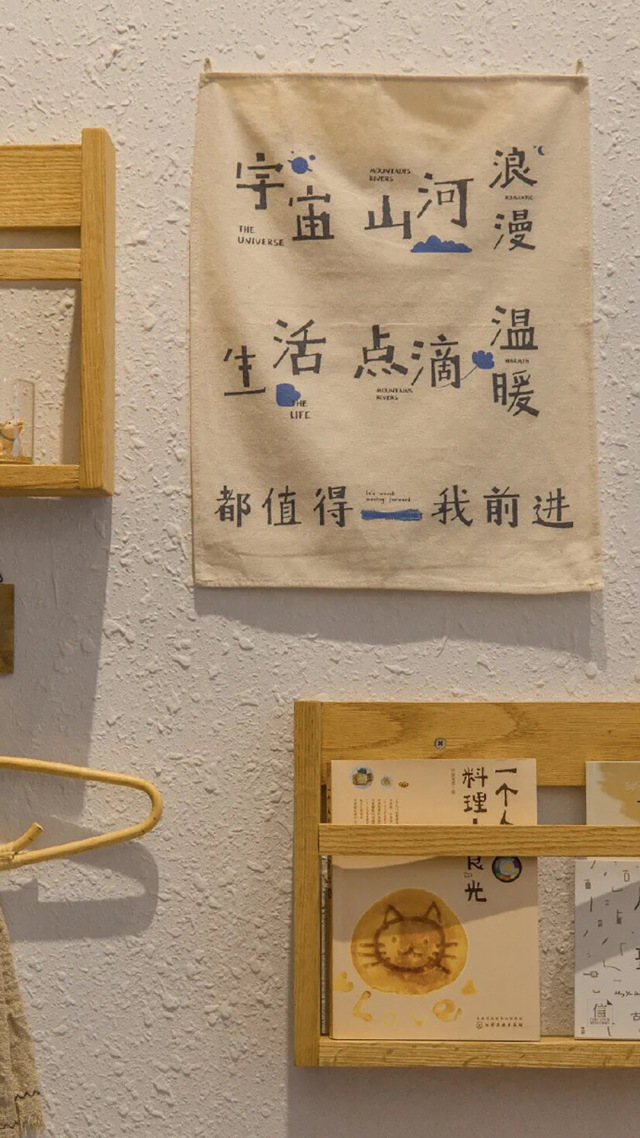 宇宙
THE
UNIVERSE
MOUNTAINS
RIVERS
山河
浪漫
ROMANTIC
生活
THE
LIFE
点滴
MOUNTAINS
RIVERS
温暖
WARMTH
都值得
It's worth
moving forward
我前进
一个人
料理
食光